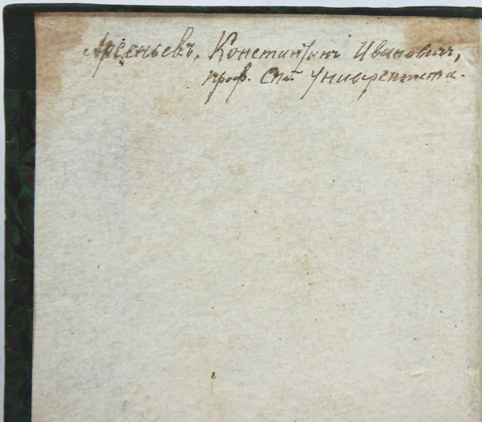 Арсеньевъ, Константинъ Ивановичъ,
проф. Спб. Университета.